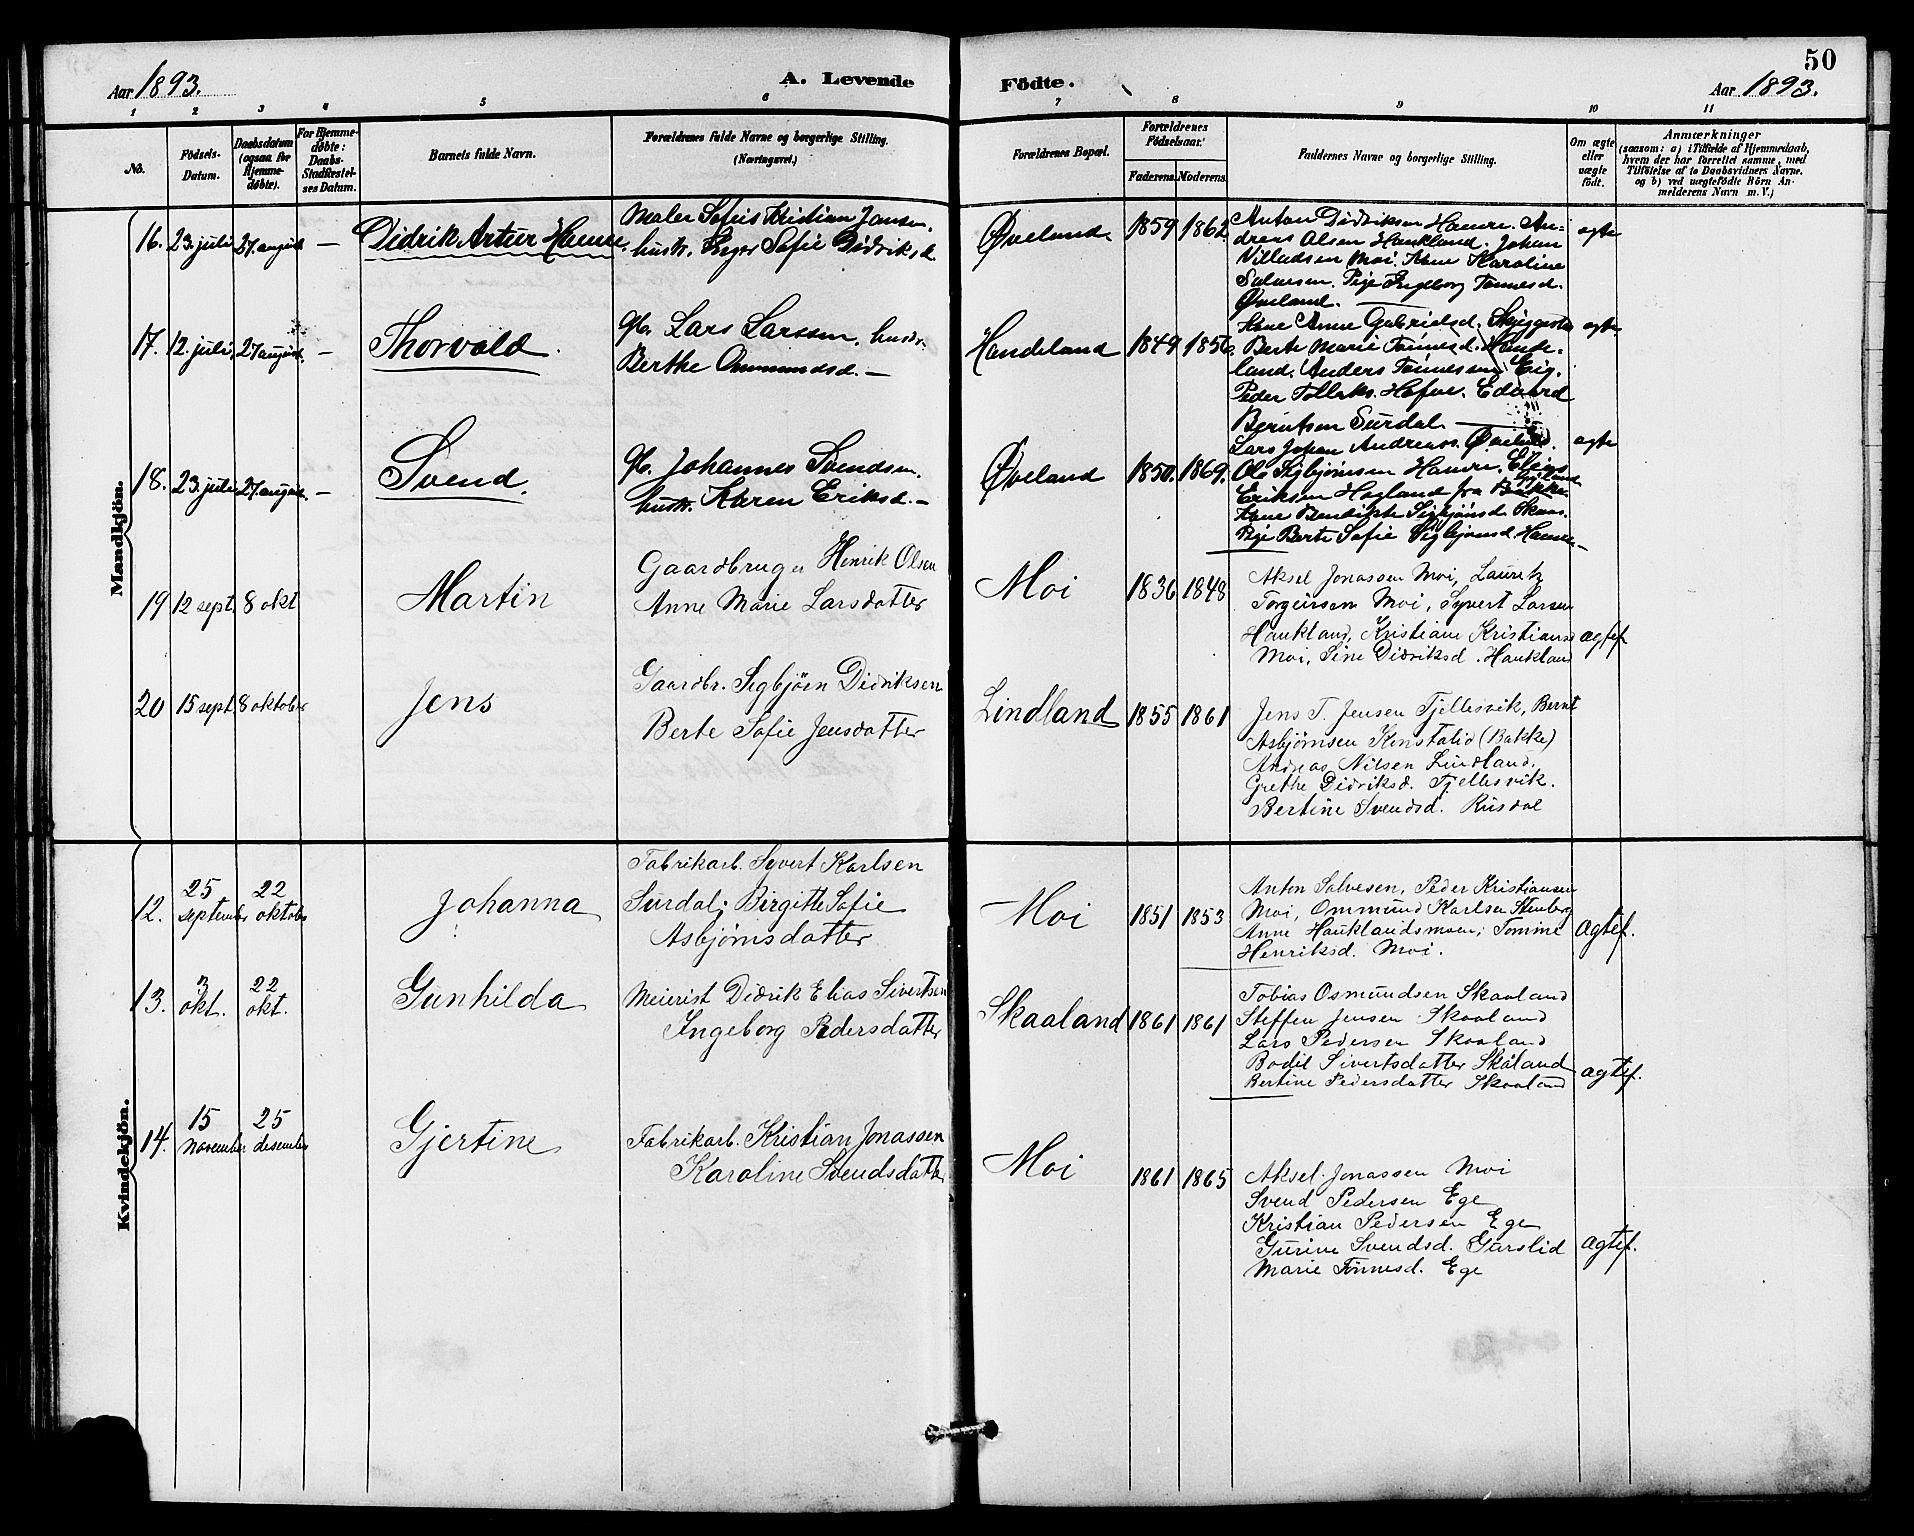 50
Aar 1893. A. Levende Födte. Aar 1893.
1 2 3 4 5 6 7 8 9 10 11
No. Födsels-Datum. Daabsdatum (ogsaa for Hjemmedöbte). For Hjemmedöbte: Daabs-Stadfæstelses Datum. Barnets fulde Navn. Forældrenes fulde Navne og borgerlige Stilling. (Næringsvei.) Forældrenes Bopæl. Forældrenes Födselsaar. Faderens. Moderens. Faddernes Navne og borgerlige Stilling. Om ægte eller uægte födt. Anmærkninger (saasom: a) i Tilfælde af Hjemmedaab, hvem der har forrettet samme, med Tilföielse af to Daabsvidners Navne, og b) ved uægtefödte Börn Anmelderens Navn m. V.)
Mandkjön.
16. 23. juli 27 august — Didrik Artur Hamre.
Maler Kristian Jansen,
hustr. Inger Sofie Didriksd.
Øveland 1859 1862
Anton Didriksen Hamre. An-
dreas Olsen Haukland. Johan
Villadsen Moi. Kone Karoline
Salvesen. Pige Ingeborg Tønnesd.
Øveland.
ægte
17. 12. juli 27 august. — Thorvald.
Gb. Lars Larssen, hustr.
Berthe Ommundsd. —
Handeland 1849 1856
Kone Anne Gabrielsd.
Berte Marie Tønnesd. Hande-
land. Anders Tønnesen Eig.
Peder Tollaks. Hafne. Edvard
Berntsen Surdal
ægte
18. 23. juli 27. august. — Svend.
Gb. Johannes Svendsen.
hustr. Karen Eriksd. —
Øveland 1850. 1869.
Lars Johan Andreass. Øveland.
Ole Sigbjørnsen Hamre. Elias
Eriksen Hogland fra Bakke
Kone Bendikte Sigbjørnsd. Skaar.
Pige Berte Sofie Sigbjørnsd. Hamre
ægte
19 12 sept. 8 okt Martin
Gaardbruger Henrik Olsen
Anne Marie Larsdatter
Moi 1836 1848
Aksel Jonassen Moi, Lauritz
Torgeirsen Moi, Syvert Larsen
Haukland, Kristiane Kristiansd
Moi, Sine Didriksd. Haukland
ægtef
20 15 sept. 8 oktober Jens
Gaardbr. Sigbjörn Didriksen
Berte Sofie Jensdatter
Lindland 1855 1861
Jens T. Jensen Fjellesvik, Bernt
Asbjørnsen Kenstalid (Bakke)
Andreas Nilsen Lindland.
Grethe Didriksd. Fjellesvik.
Bertine Svendsd. Risdal
Kvindekjön.
12. 25 september 22 oktober Johanna
Fabrikarb. Syvert Karlsen
Surdal; Birgitte Sofie
Asbjørnsdatter
Moi 1851 1853
Anton Salvesen, Peder Kristiansen
Moi, Ommund Karlsen Stenberg
Anne Hauklandsmoen; Tomine
Henriksd. Moi.
ægtef.
13. 3 okt. 22 okt. Gunhilda
Meierist Didrik Elias Sivertsen
Ingeborg Pedersdatter
Skaaland 1861 1861
Tobias Osmundsen Skaaland
Steffen Jensen Skaaland
Lars Pedersen Skaaland
Bodil Sivertsdatter Skåland
Bertine Pedersdatter Skaaland
ægtef.
14. 15 november 25 desember Gjertine
Fabrikarb. Kristian Jonassen
Karoline Svendsdatter
Moi 1861 1865
Aksel Jonassen Moi
Svend Pedersen Ege
Kristian Pedersen Ege
Gurine Svendsd. Gurslid
Marie Tönnesd. Ege
ægtef.